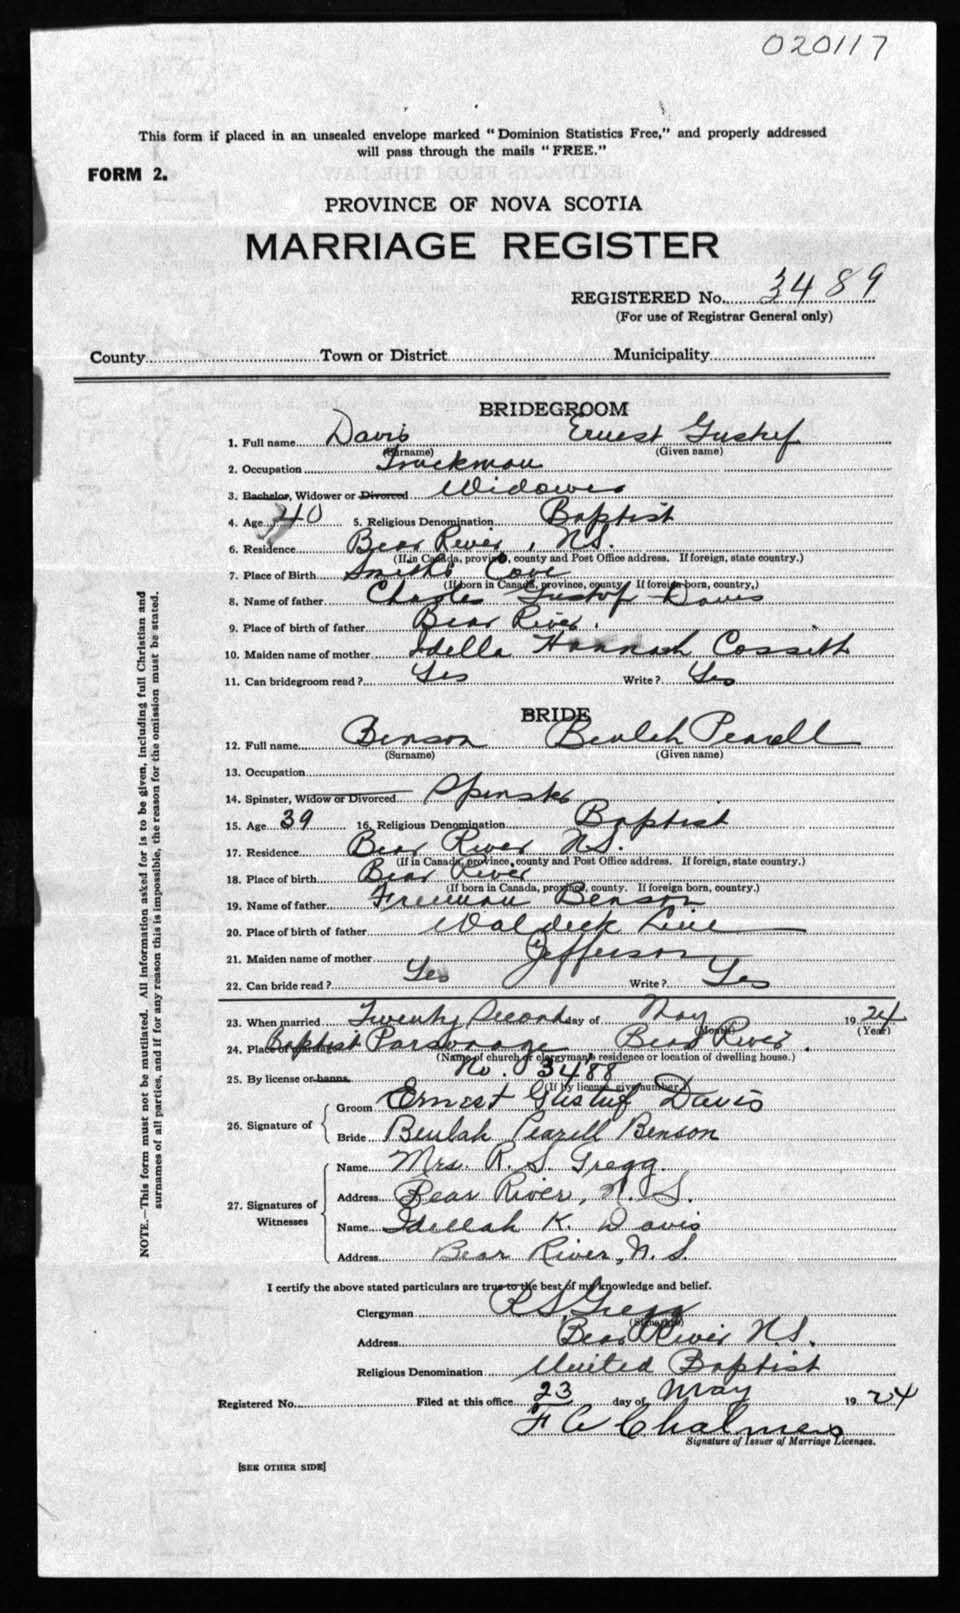 020117
This form if placed in an unsealed envelope marked "Dominion Statistics Free," and properly addressed
will pass through the mails "FREE."
FORM 2.
PROVINCE OF NOVA SCOTIA
MARRIAGE REGISTER
REGISTERED No. 3489
(For use of Registrar General only)
County Town or District Municipality
BRIDEGROOM
1. Full name Davis Ernest Gustuf
(Surname) (Given name)
2. Occupation Truckman
3. Bachelor, Widower or Divorced Widower
4. Age 40 5. Religious Denomination Baptist
6. Residence Bear River, N.S.
(If in Canada, province, county and Post Office address. If foreign, state country.)
7. Place of Birth Smiths Cove
(If born in Canada, province, county. If foreign born, country,)
8. Name of father Charles Gustof Davis
9. Place of birth of father Bear River.
10. Maiden name of mother Idella Hannah Cossith
11. Can bridegroom read? Yes Write? Yes
BRIDE
12. Full name Benson Beulah Pearell
(Surname) (Given name)
13. Occupation
14. Spinster, Widow or Divorced Spinster
15. Age 39 16. Religious Denomination Baptist
17. Residence Bear River N.S.
(If in Canada, province, county and Post Office address. If foreign, state country.)
18. Place of birth Bear River
(If born in Canada, province, county. If foreign born, country.)
19. Name of father Freeman Benson
20. Place of birth of father Waldeck Line
21. Maiden name of mother Jefferson
22. Can bride read? Yes Write? Yes
23. When married Twenty Second day of May 1924
(Month) (Year)
24. Place of marriage Baptist Parsonage Bear River.
(Name of church or clergyman's residence or location of dwelling house.)
25. By license or banns. No. 3488
(If by license, give number.)
26. Signature of
Groom Ernest Gustuf Davis
Bride Beulah Pearell Benson
27. Signatures of Witnesses
Name Mrs. R. S. Gregg.
Address Bear River, N. S.
Name Idellah K. Davis
Address Bear River, N. S.
I certify the above stated particulars are true to the best of my knowledge and belief.
Clergyman R.S. Gregg
(Signature)
Address Bear River N.S.
Religious Denomination United Baptist
Registered No. Filed at this office 23 day of May 1924
F C Chalmers
Signature of Issuer of Marriage Licenses.
[SEE OTHER SIDE]
NOTE.—This form must not be mutilated. All information asked for is to be given, including full Christian and
surnames of all parties, and if for any reason this is impossible, the reason for the omission must be stated.